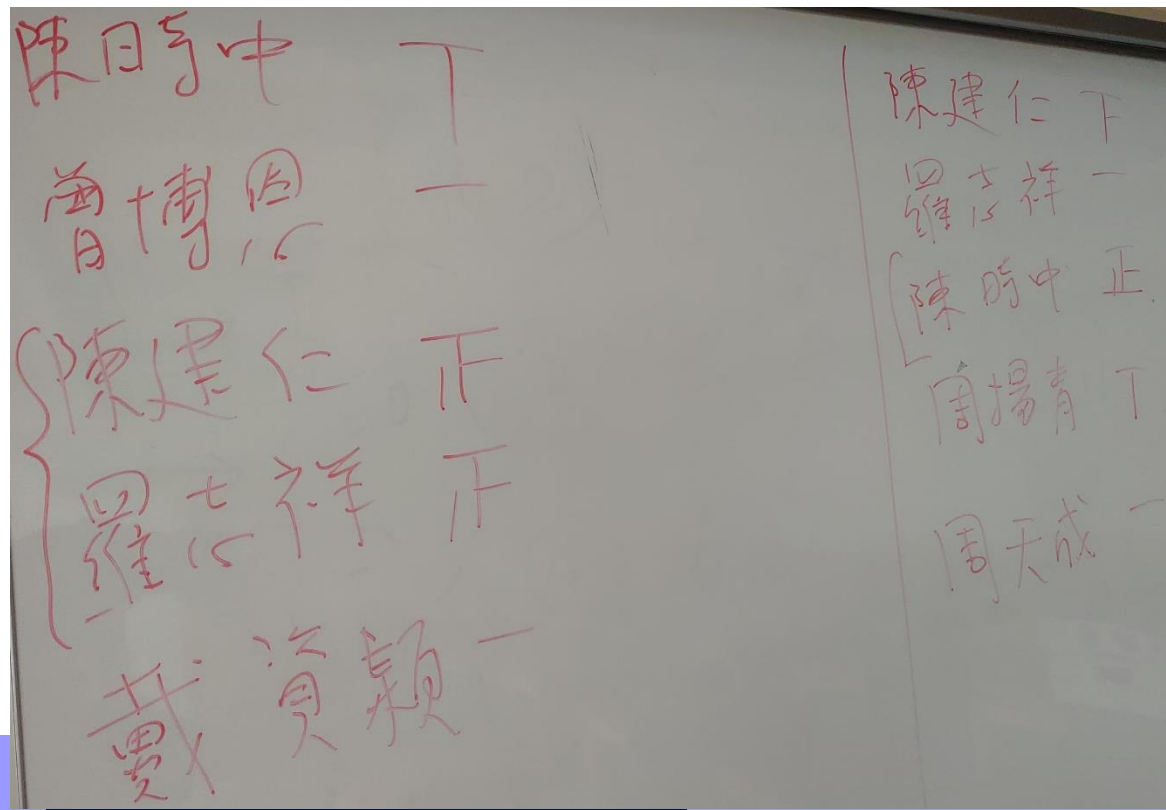 陳時中 丅
曾博恩 一
陳建仁 正
羅志祥 正
戴資穎 一
陳建仁 下
羅志祥 一
陳時中 正
周揚青 丅
周天成 一